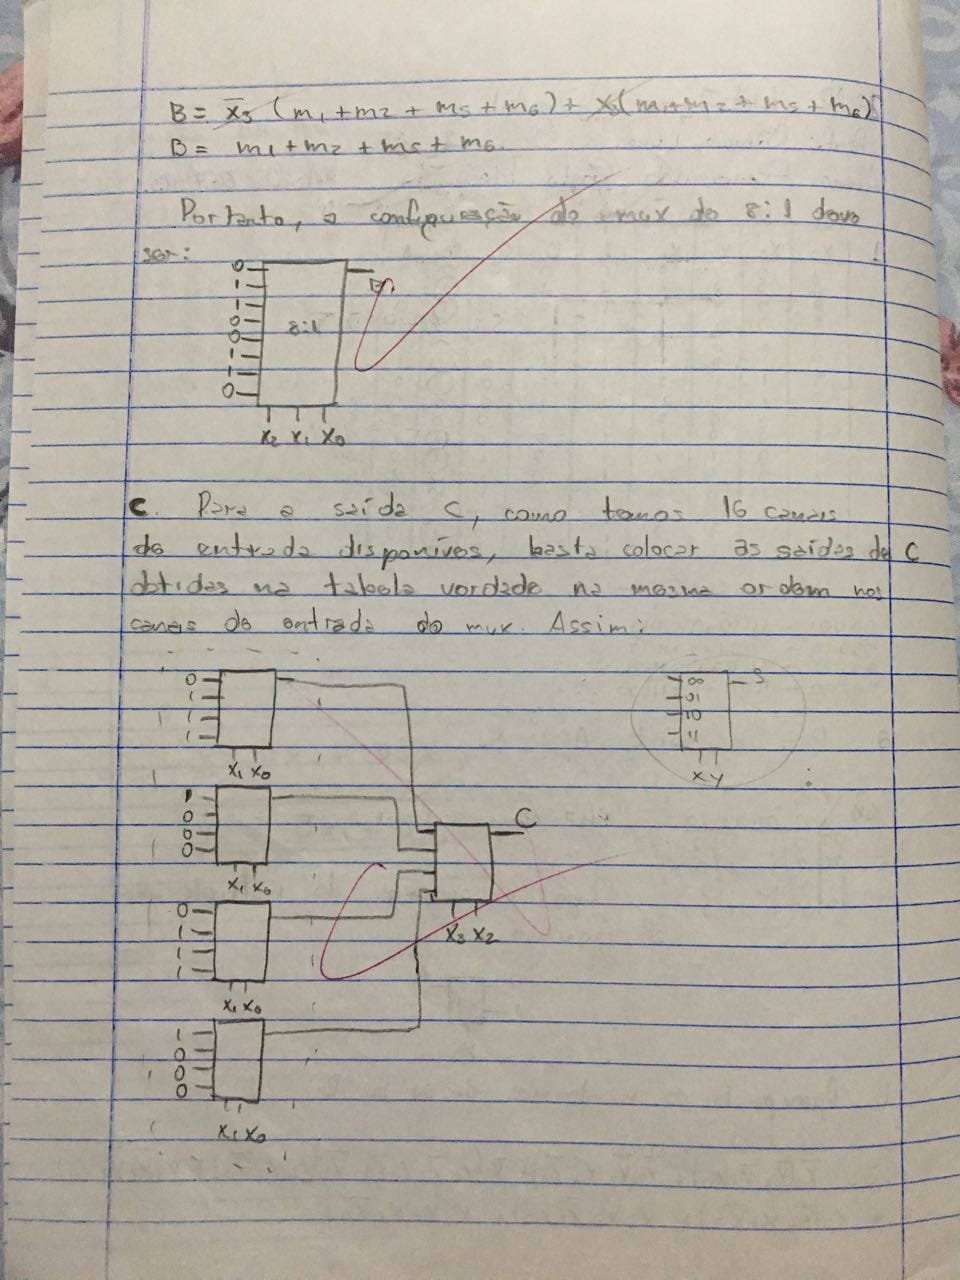 B = x̄₃ (m₁ + m₂ + m₅ + m₆) + x₃(m₁ + m₂ + m₅ + m₆)
B = m₁ + m₂ + m₅ + m₆.
Portanto, a configuração do mux de 8:1 deve
ser:
0
1
1
0
0
1
1
0
8:1
B
x₂ x₁ x₀
C. Para a saída C, como temos 16 canais
de entrada disponíves, basta colocar as saídas de C
obtidas na tabela verdade na mesma ordem nos
canais de entrada do mux. Assim:
0
1
1
1
x₁ x₀
00
01
10
11
S
x y
1
0
0
0
x₁ x₀
C
x₃ x₂
0
1
1
1
x₁ x₀
1
0
0
0
x₁ x₀